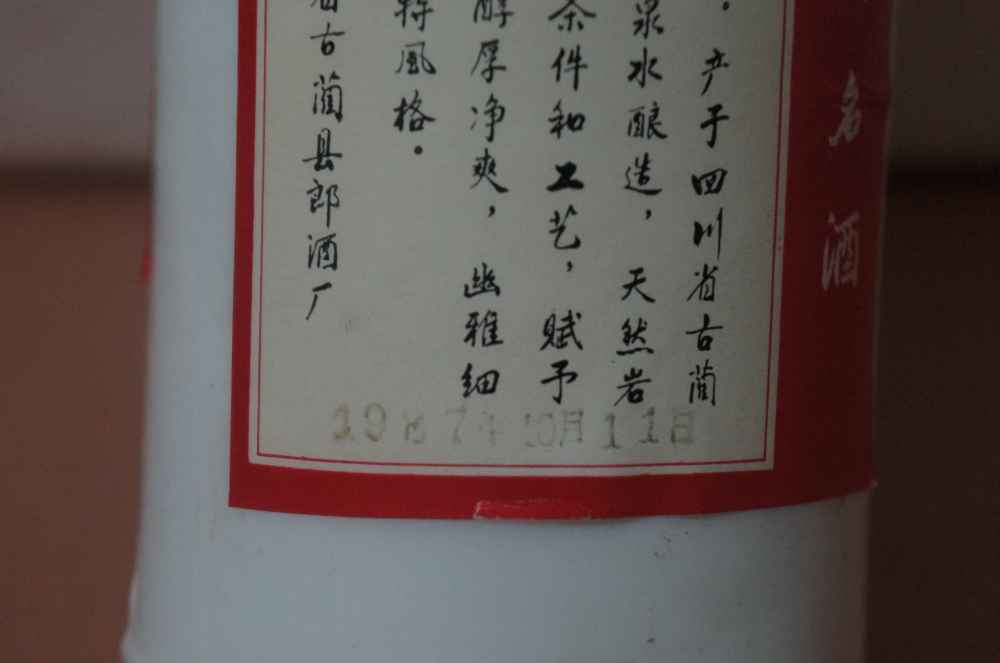 名酒
。产于四川省古蔺
泉水酿造，天然岩
条件和工艺，赋予
醇厚净爽，幽雅细
特風格。
省古蔺县郎酒厂
1987年10月11日